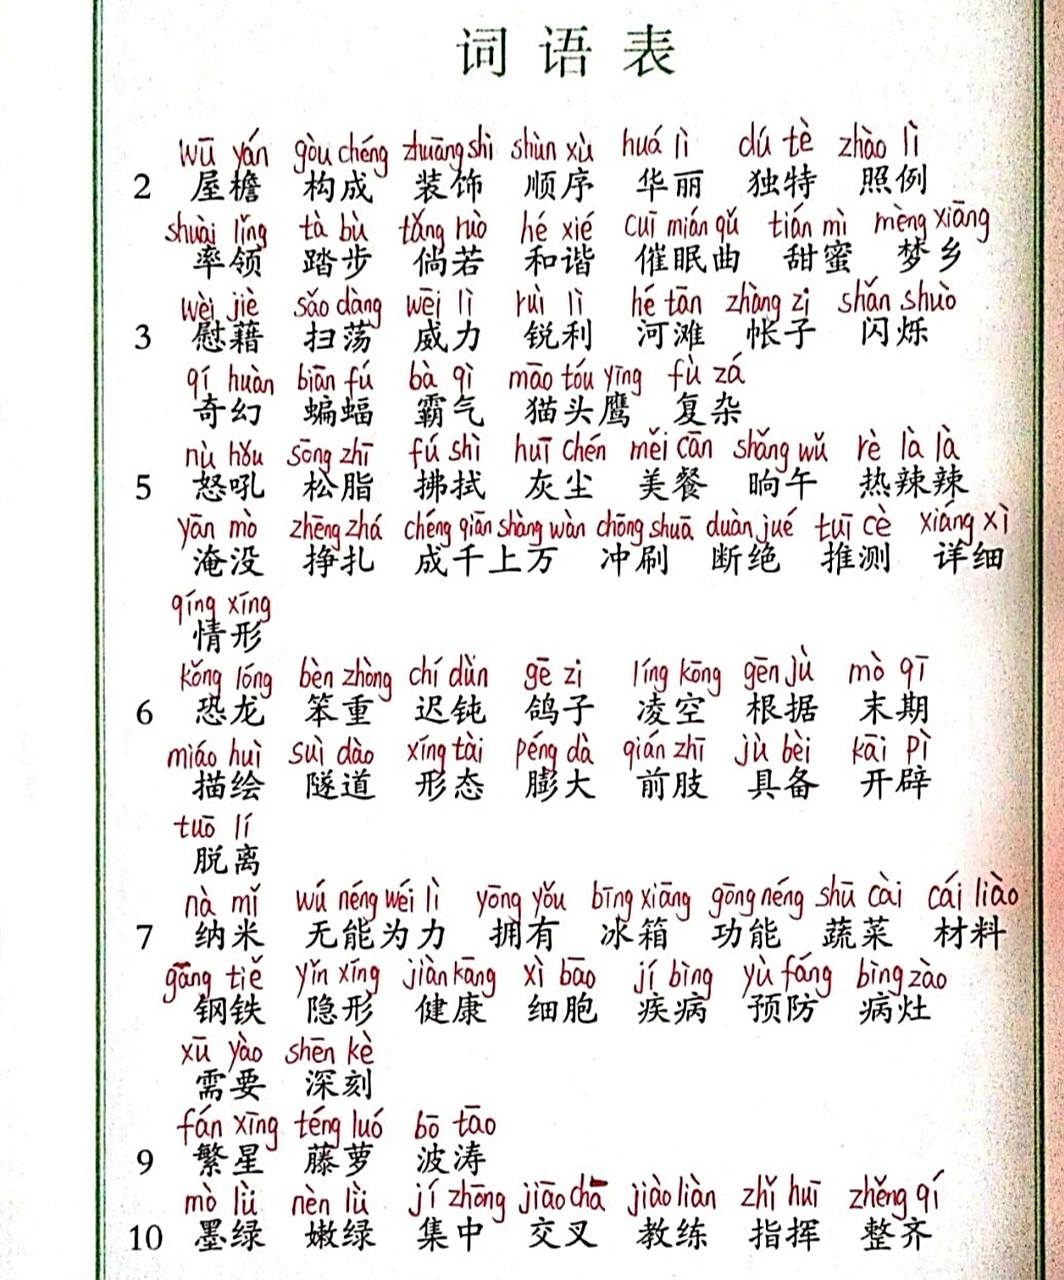 词语表
wū yán gòu chéng zhuāng shì shùn xù huá lì dú tè zhào lì
2 屋檐 构成 装饰 顺序 华丽 独特 照例
shuài lǐng tà bù tǎng ruò hé xié cuī mián qǔ tián mì mèng xiāng
率领 踏步 倘若 和谐 催眠曲 甜蜜 梦乡
wèi jiè sǎo dàng wēi lì ruì lì hé tān zhàng zi shǎn shuò
3 慰藉 扫荡 威力 锐利 河滩 帐子 闪烁
qí huàn biān fú bà qì māo tóu yīng fù zá
奇幻 蝙蝠 霸气 猫头鹰 复杂
nù hǒu sōng zhī fú shì huī chén měi cān shǎng wǔ rè là là
5 怒吼 松脂 拂拭 灰尘 美餐 晌午 热辣辣
yān mò zhēng zhá chéng qiān shàng wàn chōng shuā duàn jué tuī cè xiáng xì
淹没 挣扎 成千上万 冲刷 断绝 推测 详细
qíng xíng
情形
kǒng lóng bèn zhòng chí dùn gē zi líng kōng gēn jù mò qī
6 恐龙 笨重 迟钝 鸽子 凌空 根据 末期
miáo huì suì dào xíng tài péng dà qián zhī jù bèi kāi pì
描绘 隧道 形态 膨大 前肢 具备 开辟
tuō lí
脱离
nà mǐ wú néng wéi lì yōng yǒu bīng xiāng gōng néng shū cài cái liào
7 纳米 无能为力 拥有 冰箱 功能 蔬菜 材料
gāng tiě yǐn xíng jiàn kāng xì bāo jí bìng yù fáng bìng zào
钢铁 隐形 健康 细胞 疾病 预防 病灶
xū yào shēn kè
需要 深刻
fán xīng téng luó bō tāo
9 繁星 藤萝 波涛
mò lǜ nèn lǜ jí zhōng jiāo chā jiào liàn zhǐ huī zhěng qí
10 墨绿 嫩绿 集中 交叉 教练 指挥 整齐